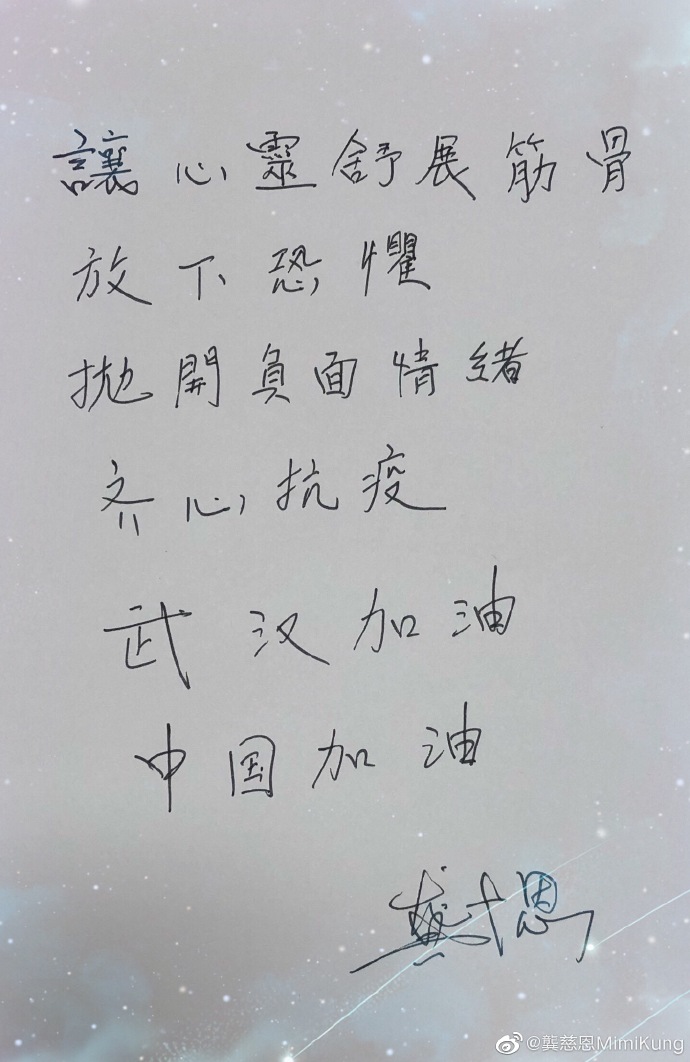 讓心靈舒展筋骨
放下恐懼
拋開負面情緒
齐心抗疫
武汉加油
中国加油
龔慈恩
@龔慈恩MimiKung